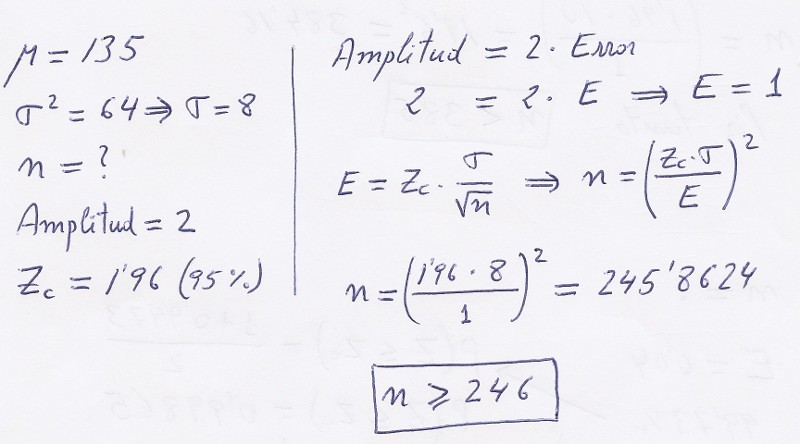 μ = 135
σ² = 64 ⇒ σ = 8
n = ?
Amplitud = 2
Zc = 1'96 (95%)
Amplitud = 2 · Error
2 = 2 · E ⇒ E = 1
E = Zc · σ/√n ⇒ n = (Zc · σ / E)²
n = (1'96 · 8 / 1)² = 245'8624
n ⩾ 246